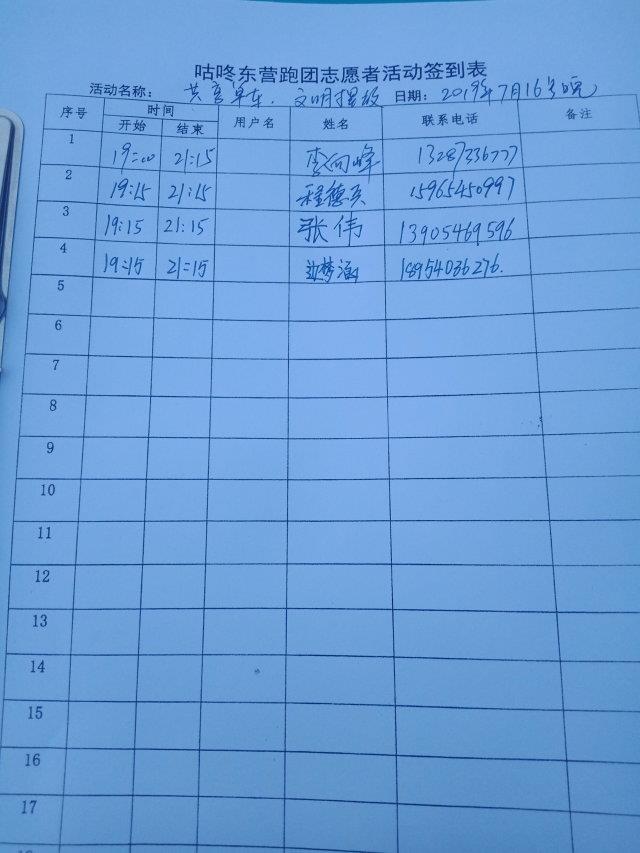 咕咚东营跑团志愿者活动签到表
活动名称： 共享单车．文明摆放 日期： 2019年7月16号晚
序号 时间 用户名 姓名 联系电话 备注
开始 结束
1 19:00 21:15 李向峰 13287336777
2 19:15 21:15 程德 15965450997
3 19:15 21:15 张伟 13905469596
4 19:15 21:15 梦涵 18954036276.
5
6
7
8
9
10
11
12
13
14
15
16
17